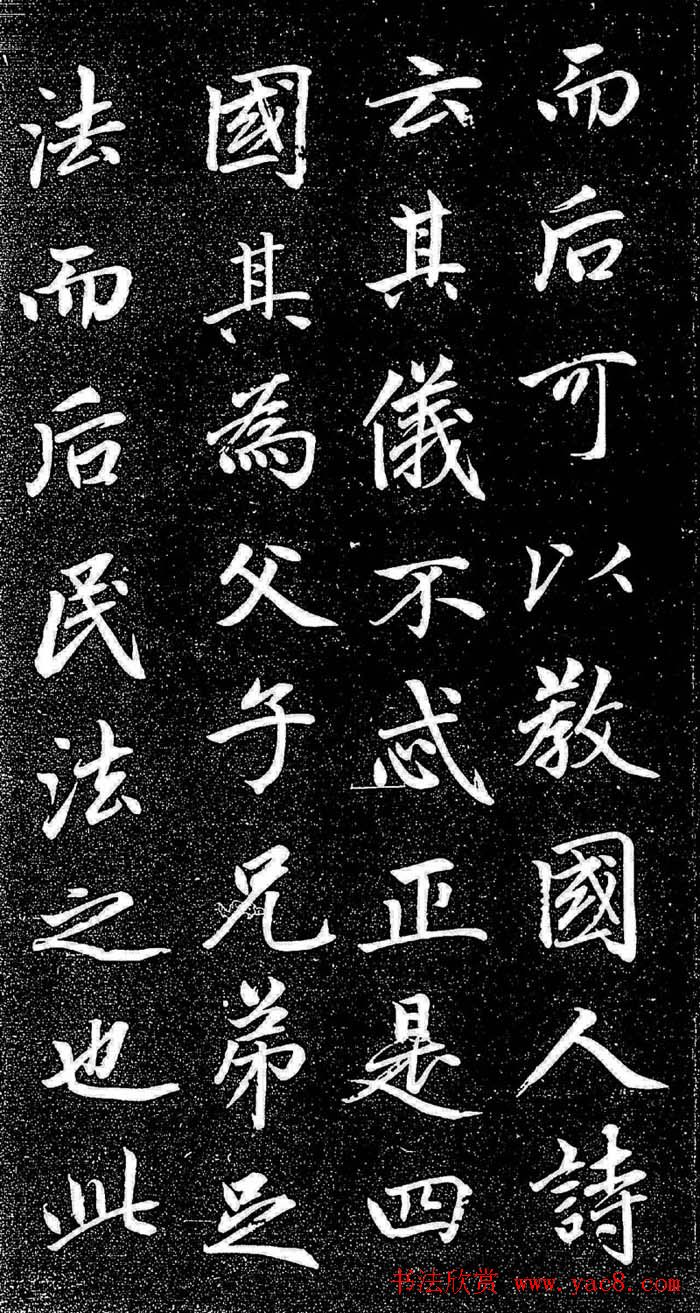 而后可以教國人詩
云其儀不忒正是四
國其為父子兄弟足
法而后民法之也此
书法欣赏 www.yac8.com